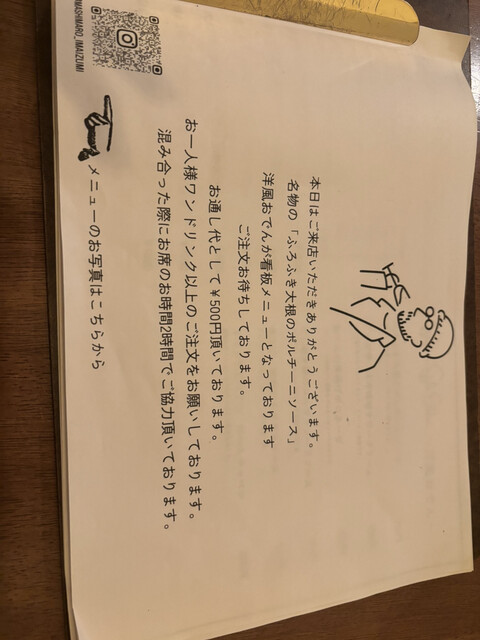 本日はご来店いただきありがとうございます。
名物の「ふろふき大根のポルチーニソース」
洋風おでんが看板メニューとなっております
ご注文お待ちしております。
お通し代として¥500円頂いております。
お一人様ワンドリンク以上のご注文をお願いしております。
混み合った際にお席のお時間2時間でご協力頂いております。
メニューのお写真はこちらから
MASHIMARO_IMAIZUMI